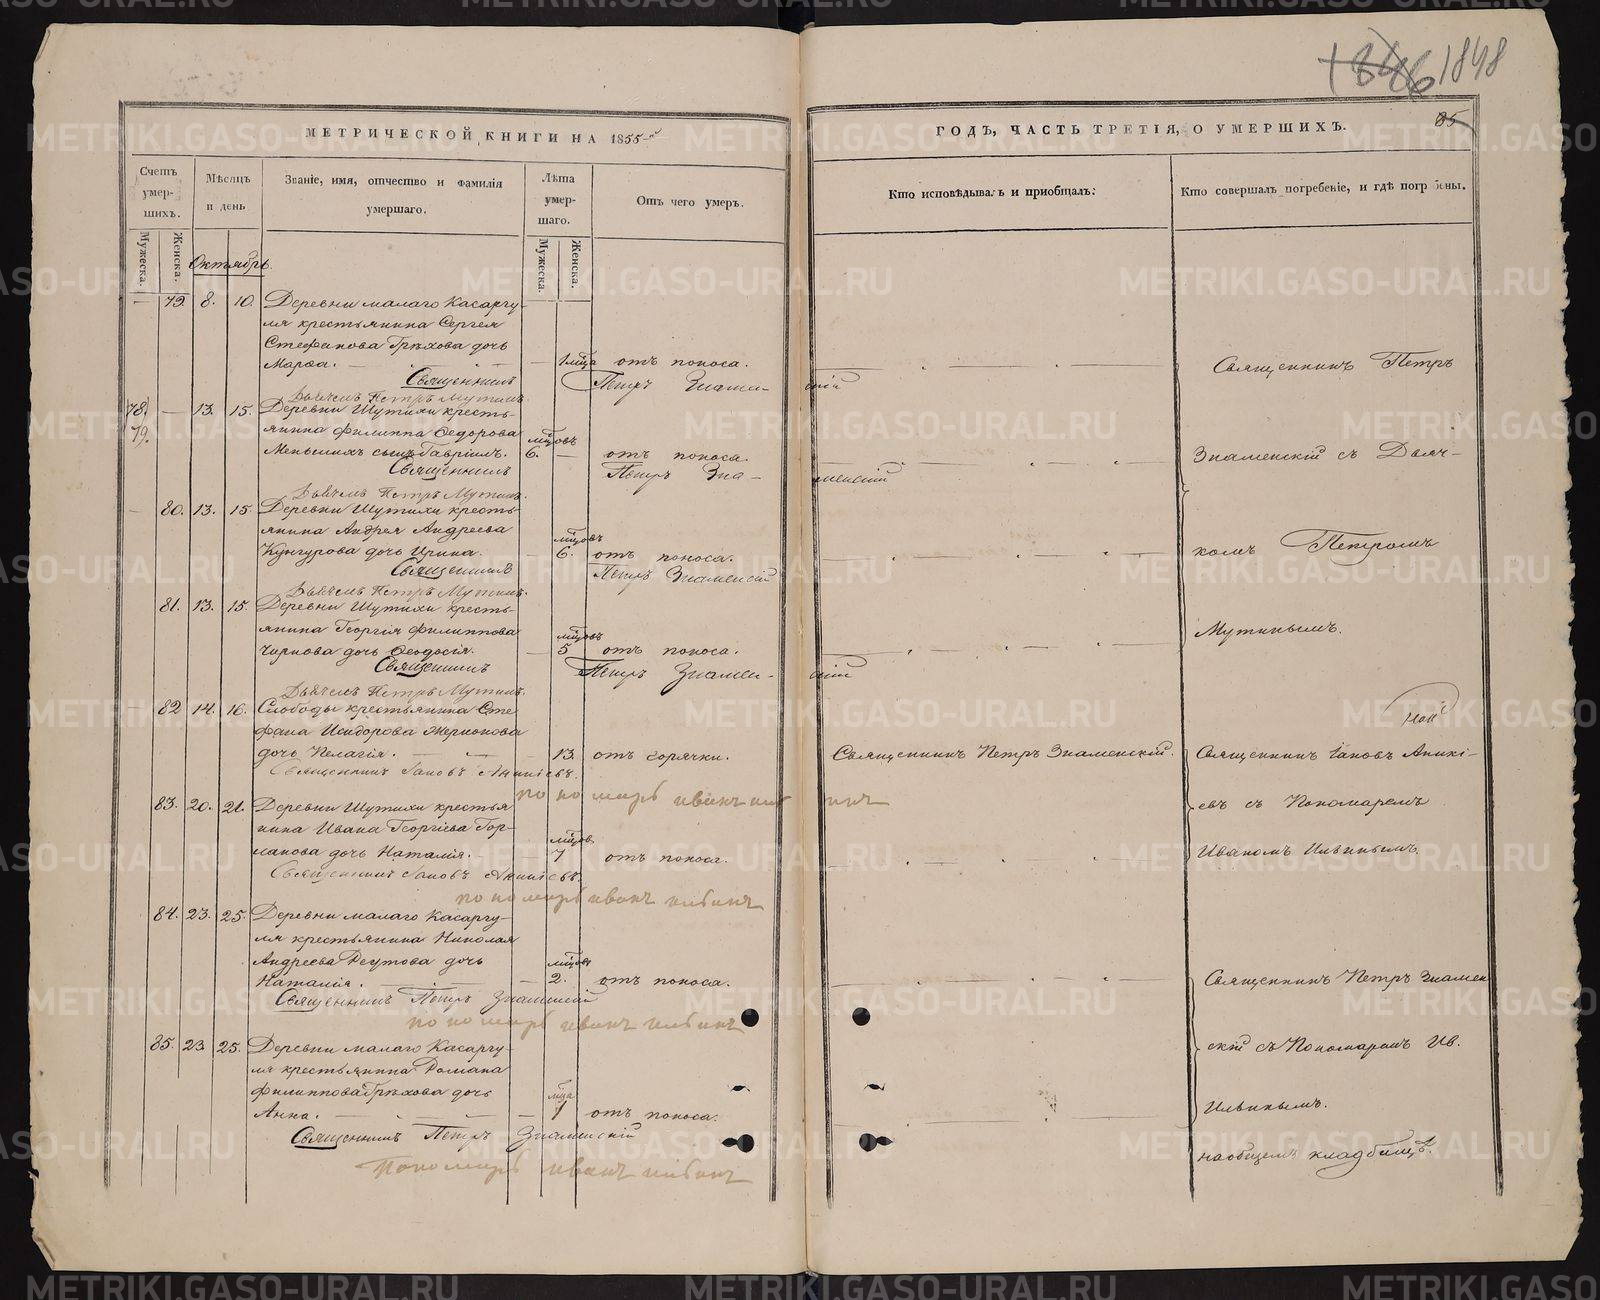 1848
МЕТРИЧЕСКОЙ КНИГИ НА 1855-й
ГОДЪ, ЧАСТЬ ТРЕТІЯ, О УМЕРШИХЪ.
85
Счетъ умер-шихъ.
Мужеска.
Женска.
Мѣсяцъ и день
Званіе, имя, отчество и фамилія умершаго.
Лѣта умер-шаго.
Мужеска.
Женска.
Отъ чего умеръ.
Кто исповѣдывалъ и пріобщалъ:
Кто совершалъ погребеніе, и гдѣ погребены.
Октябрь.
79. 8. 10. Деревни малаго Касаргу-
ля крестьянина Сергея
Стефанова Грѣхова дочь
Марѳа. 1 мца отъ поноса.
Священникъ Петръ Знаменскій
Дьячекъ Петръ Мутинъ.
78. 13. 15. Деревни Шутихи кресть-
79. янина Филиппа Ѳедорова мцовъ
Меньшихъ сынъ Гавріилъ. 6. отъ поноса.
Священникъ Петръ Знаменскій
Дьячекъ Петръ Мутинъ.
80. 13. 15. Деревни Шутихи кресть-
янина Андрея Андреева мцовъ
Кунгурова дочь Ирина. 6. отъ поноса.
Священникъ Петръ Знаменскій
Дьячекъ Петръ Мутинъ.
81. 13. 15. Деревни Шутихи кресть-
янина Георгія Филиппова мцовъ
дочь Ѳеодосія. 5 отъ поноса.
Священникъ Петръ Знаменскій
Дьячекъ Петръ Мутинъ.
82 14. 16. Слободы крестьянина Сте-
фана Исидорова
дочь Пелагія. 13. отъ горячки.
Священникъ Іаковъ Аникіевъ.
пономарь иванъ ильинъ
83. 20. 21. Деревни Шутихи крестья
нина Ивана Георгіева Гор-
лакова дочь Наталія. мцовъ 7 отъ поноса.
Священникъ Іаковъ Аникіевъ.
пономарь иванъ ильинъ
84. 23. 25. Деревни малаго Касаргу-
ля крестьянина Николая
Андреева Реутова дочь мцовъ
Наталія. 2. отъ поноса.
Священникъ Петръ Знаменскій
пономарь иванъ ильинъ
85. 23. 25. Деревни малаго Касаргу-
ля крестьянина Романа
Филиппова Грѣхова дочь мца
Анна. 1 отъ поноса.
Священникъ Петръ Знаменскій
Пономарь иванъ ильинъ
Священникъ Петръ Знаменскій.
Священникъ Петръ
Знаменскій съ Дьяч-
комъ Петромъ
Мутинымъ.
Священникъ Іаковъ Аникі-
евъ съ Пономаремъ
Иваномъ Ильинымъ.
Священникъ Петръ Знамен
скій съ Пономаремъ Ив.
Ильинымъ.
на общемъ кладбищѣ.
METRIKI.GASO-URAL.RU